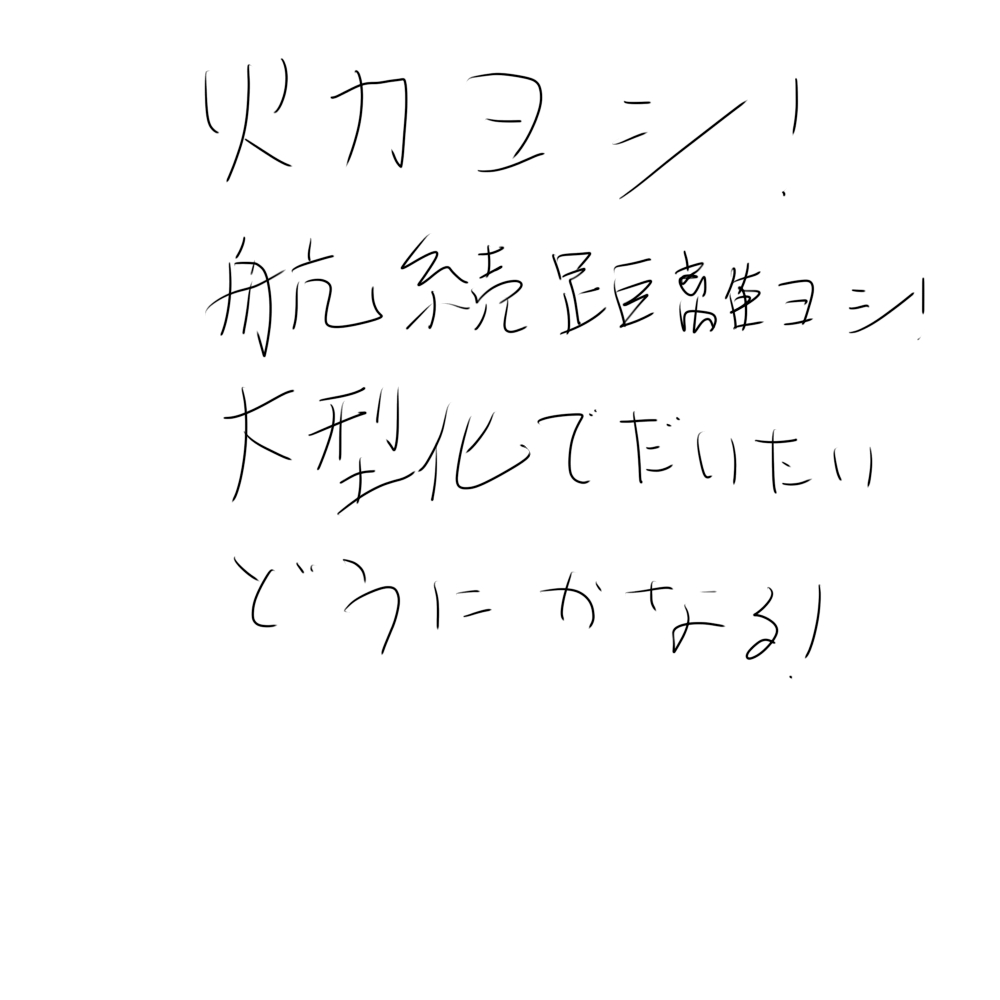 火力ヨシ!
航続距離ヨシ!
大型化でだいたい
どうにかなる!